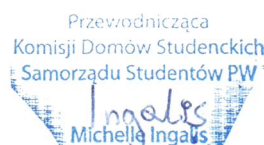 Przewodnicząca
Komisji Domów Studenckich
Samorządu Studentów PW
Ingalls
Michelle Ingalls